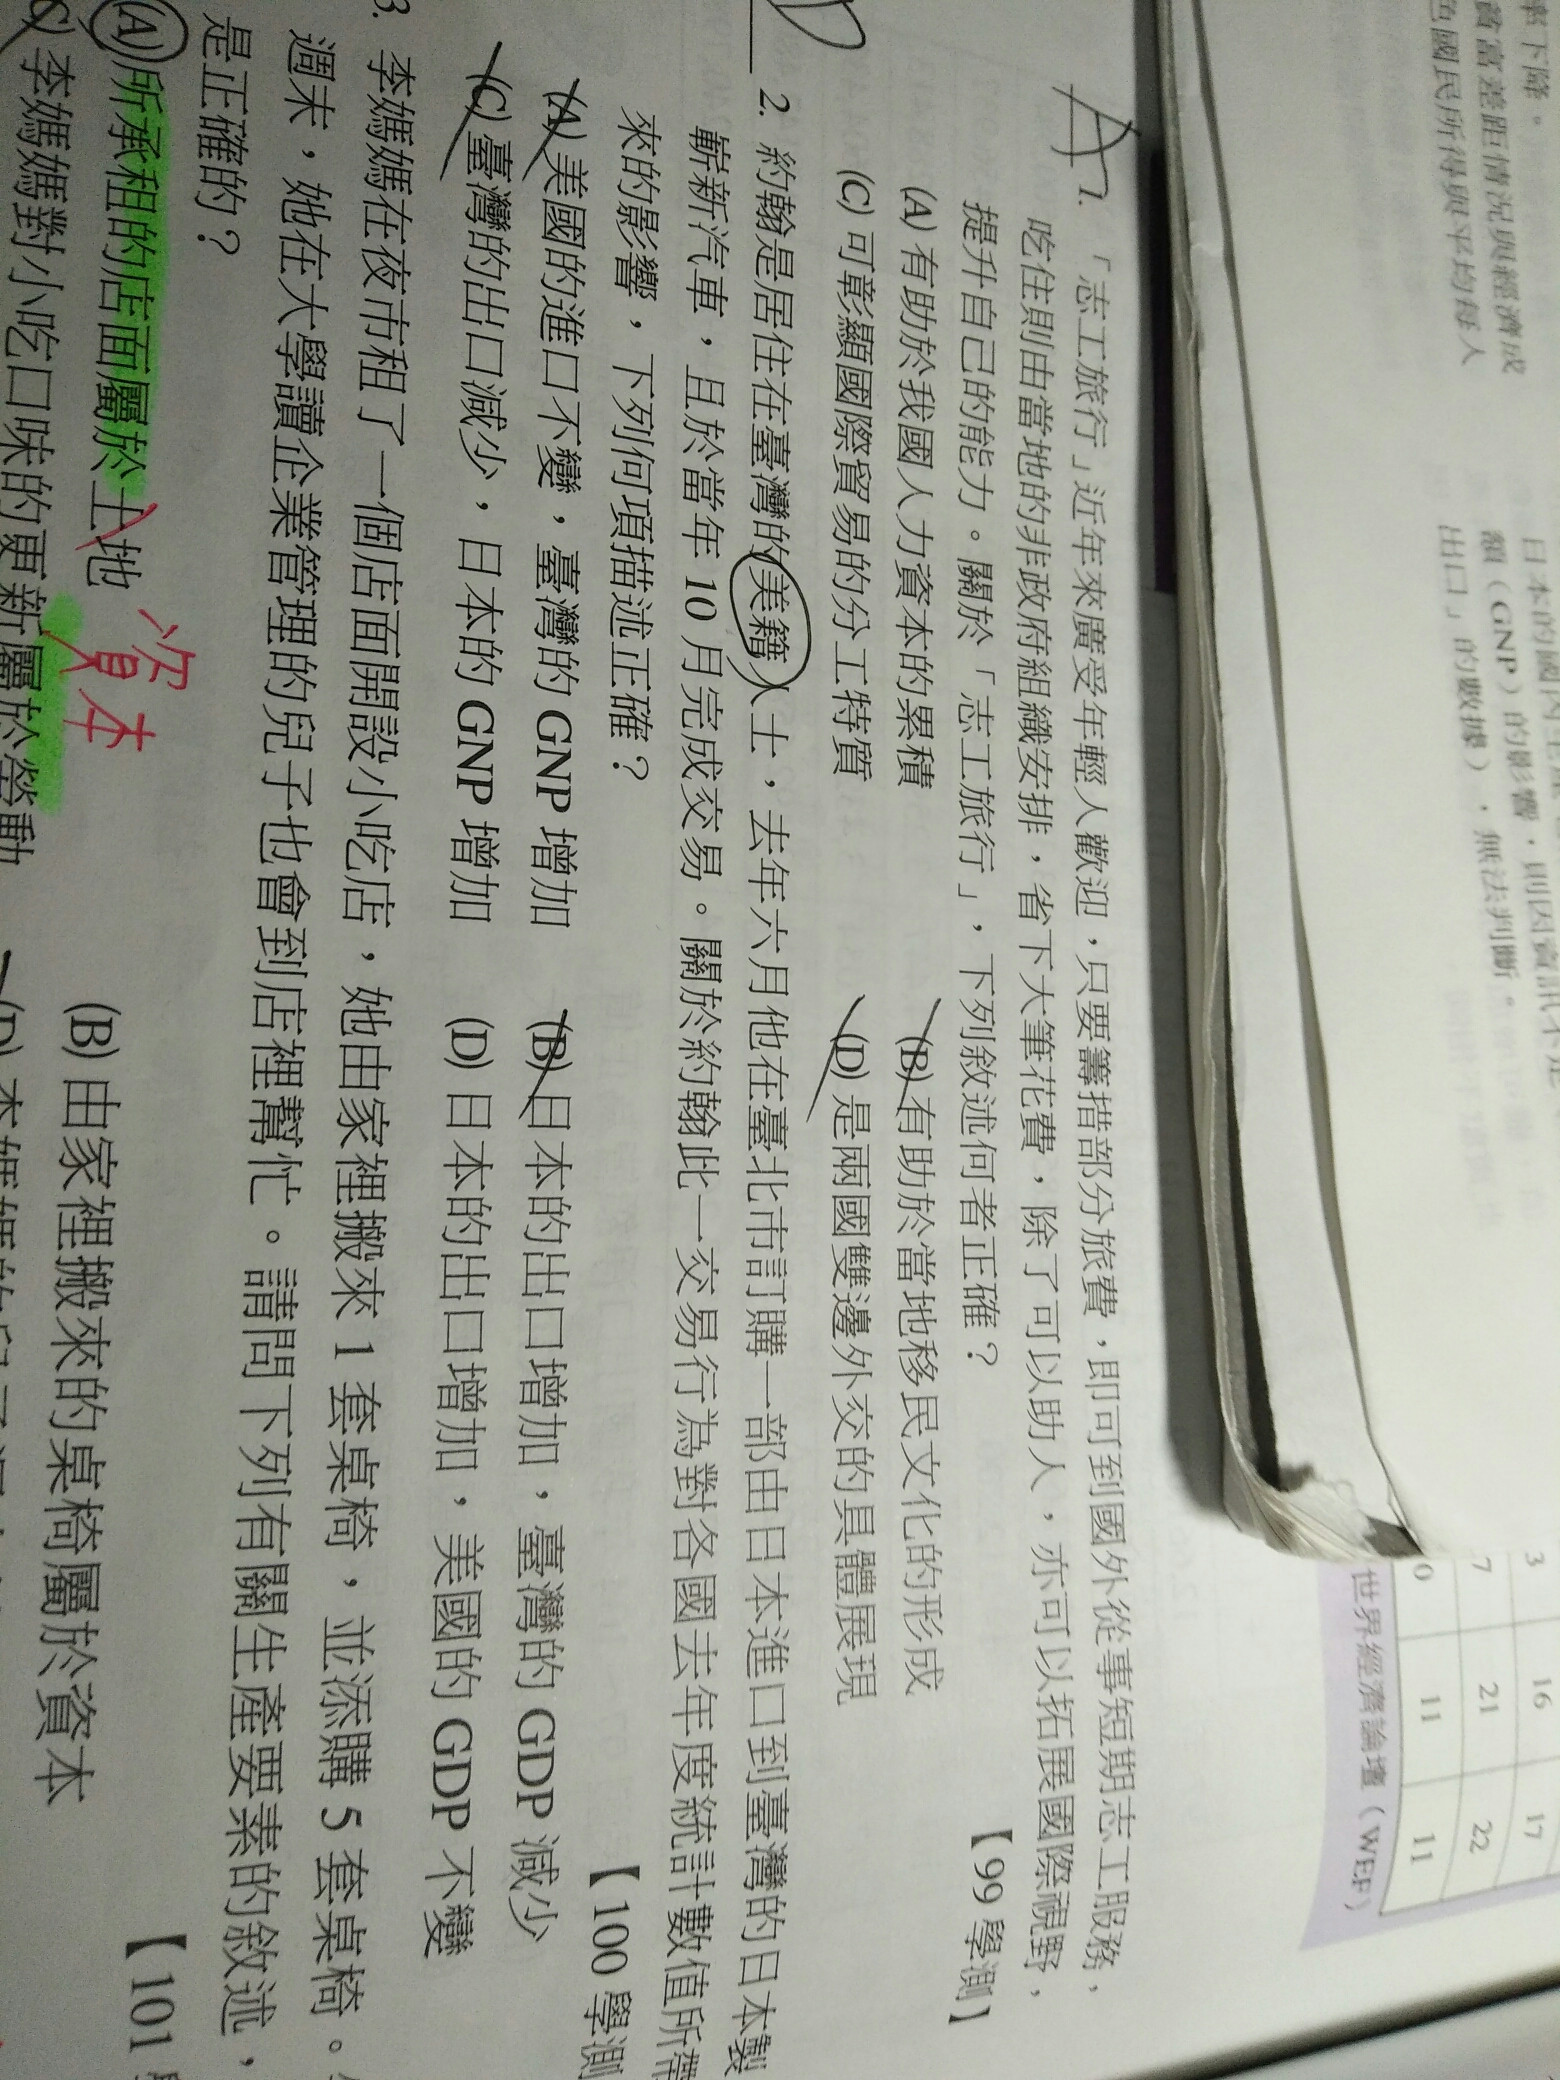 率下降。
貧富差距情況與經濟成
國民所得與平均每人
額（GNP）的影響，則因資訊不足
出口」的數據），無法判斷。
3 16 17
7 21 22
0 11 11
世界經濟論壇（WEF）
A 1. 「志工旅行」近年來廣受年輕人歡迎，只要籌措部分旅費，即可到國外從事短期志工服務，
吃住則由當地的非政府組織安排，省下大筆花費，除了可以助人，亦可以拓展國際視野，
提升自己的能力。關於「志工旅行」，下列敘述何者正確？ 【99 學測】
(A) 有助於我國人力資本的累積 (B) 有助於當地移民文化的形成
(C) 可彰顯國際貿易的分工特質 (D) 是兩國雙邊外交的具體展現
D 2. 約翰是居住在臺灣的美籍人士，去年六月他在臺北市訂購一部由日本進口到臺灣的日本製
嶄新汽車，且於當年 10 月完成交易。關於約翰此一交易行為對各國去年度統計數值所帶
來的影響，下列何項描述正確？ 【100 學測
(A) 美國的進口不變，臺灣的 GNP 增加 (B) 日本的出口增加，臺灣的 GDP 減少
(C) 臺灣的出口減少，日本的 GNP 增加 (D) 日本的出口增加，美國的 GDP 不變
3. 李媽媽在夜市租了一個店面開設小吃店，她由家裡搬來 1 套桌椅，並添購 5 套桌椅。
週末，她在大學讀企業管理的兒子也會到店裡幫忙。請問下列有關生產要素的敘述，
是正確的？ 【101
(A) 所承租的店面屬於土地 資本 (B) 由家裡搬來的桌椅屬於資本
(C) 李媽媽對小吃口味的更新屬於勞動